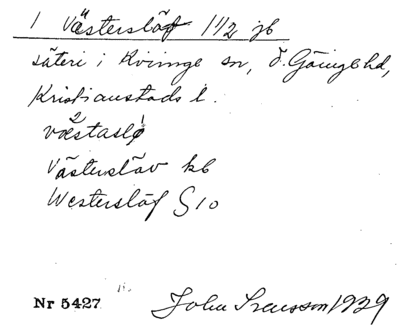 1 Västerslöf 1 1/2 jb
säteri i Kvinge sn, Ö. Göinge hd,
Kristianstads l.
Västerslöv kb
Westerslöf S10
Nr 5427 John Svensson 1929